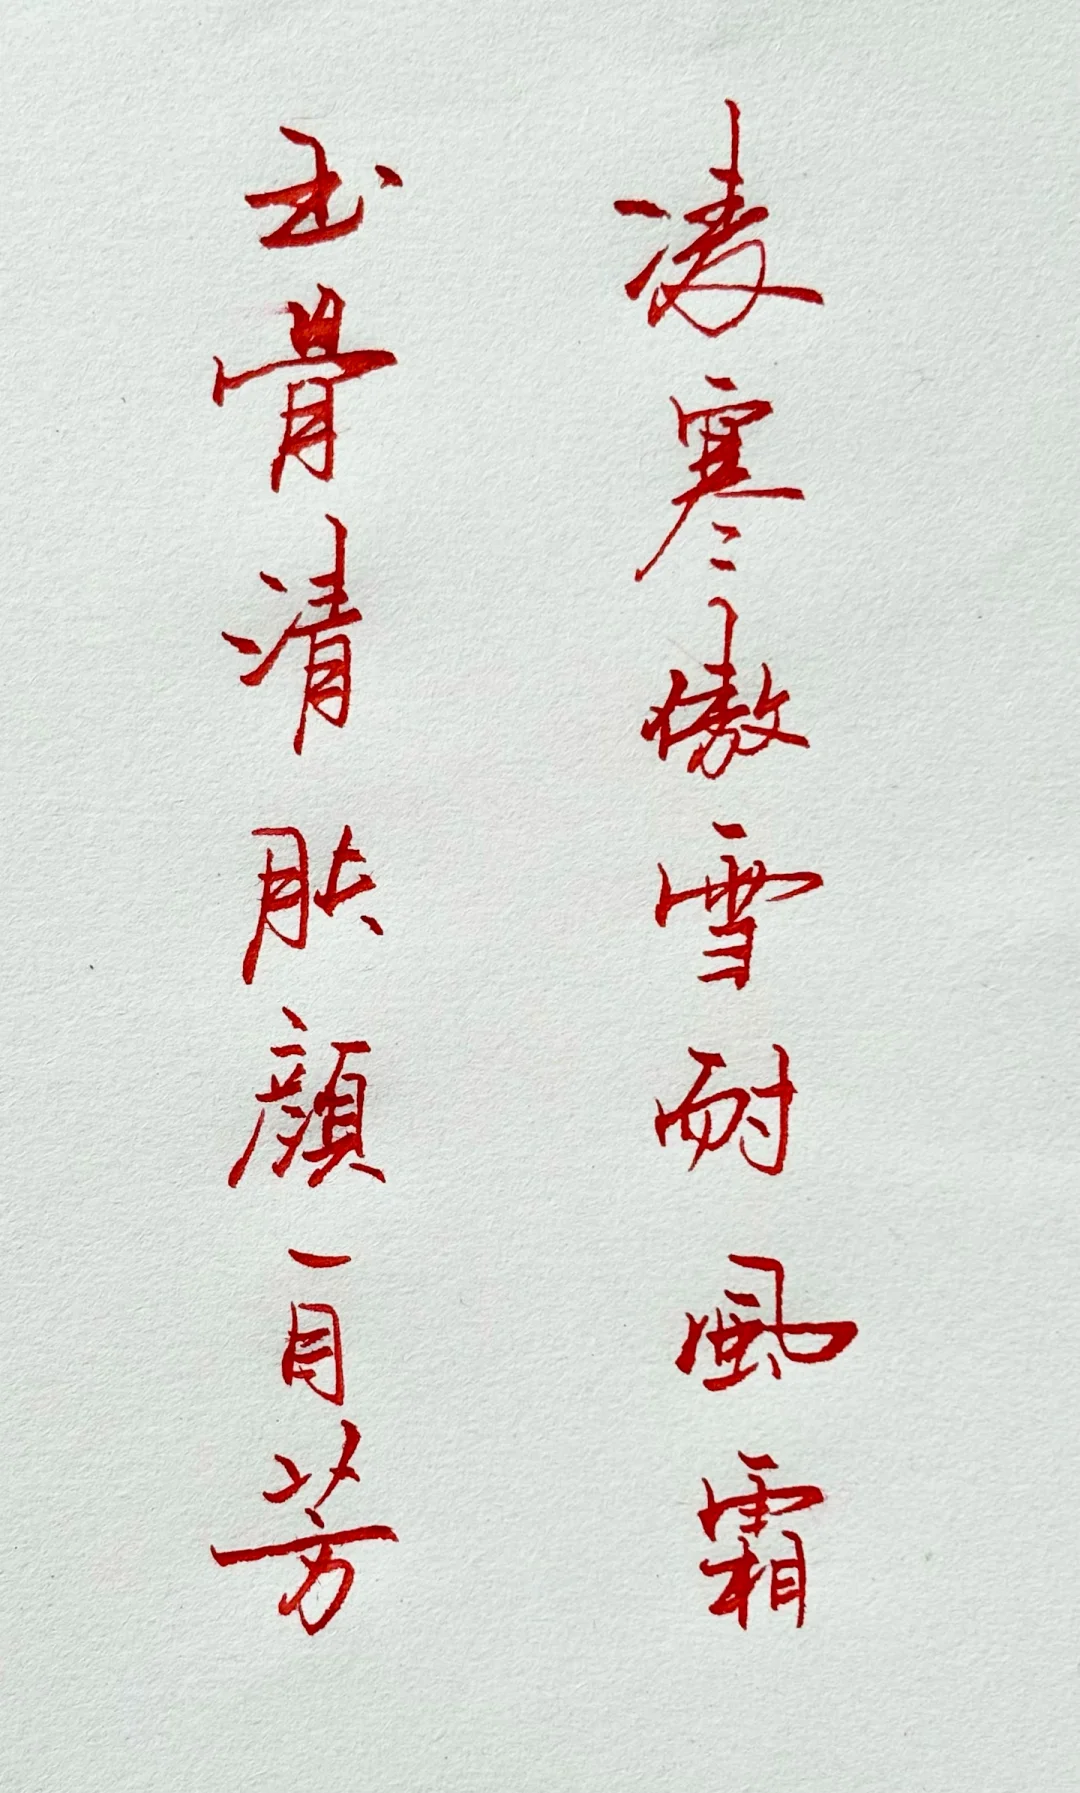 凌寒傲雪耐風霜
玉骨清肌顔自芳